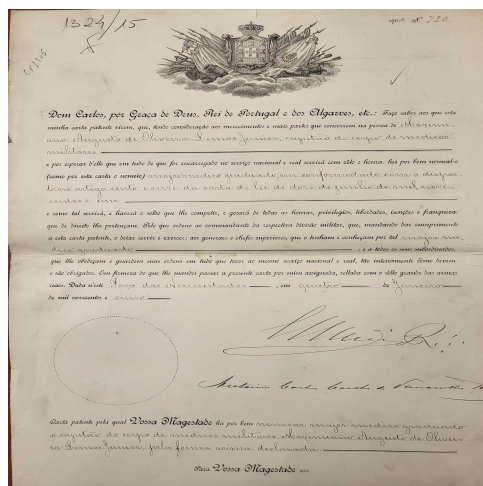 1324/15
Dom Carlos, por Graça de Deus, Rei de Portugal e dos Algarves, etc.: Faço saber aos que esta
minha carta patente virem, que, tendo consideração ao merecimento e mais partes que concorrem na pessoa de Maximi-
ano Augusto de Oliveira Lemos Junior, capitão do corpo de medicos
militares
e por esperar d'elle que em tudo de que for encarregado no serviço nacional e real servirá com zêlo e honra: hei por bem nomeal-o
(como por esta carta o nomeio) major medico graduado, em conformidade com o dispos-
to no artigo cento e onze da carta de lei de doze de junho de mil nove-
centos e um
e como tal servirá, e haverá o soldo que lhe competir, e gozará de todas as honras, privilegios, liberdades, isenções e franquezas
que de direito lhe pertençam. Pelo que ordeno ao commandante da respectiva divisão militar, que, mandando dar cumprimento
a esta carta patente, o deixe servir e exercer; aos generaes e chefes superiores, que o tenham e conheçam por tal major me-
dico graduado, e a todos os seus subordinados,
que lhe obedeçam e guardem suas ordens em tudo que tocar ao mesmo serviço nacional e real, tão inteiramente como devem
e são obrigados. Em firmeza do que lhe mandei passar a presente carta por mim assignada, sellada com o sêllo grande das armas
reaes. Dada n'este Paço das Necessidades, em quatro de Janeiro
de mil novecentos e cinco
El Rei
Carta patente pela qual Vossa Magestade ha por bem nomear major medico graduado
o capitão do corpo de medicos militares, Maximiano Augusto de Olivei-
ra Lemos Junior, pela forma acima declarada.
Para Vossa Magestade ver.